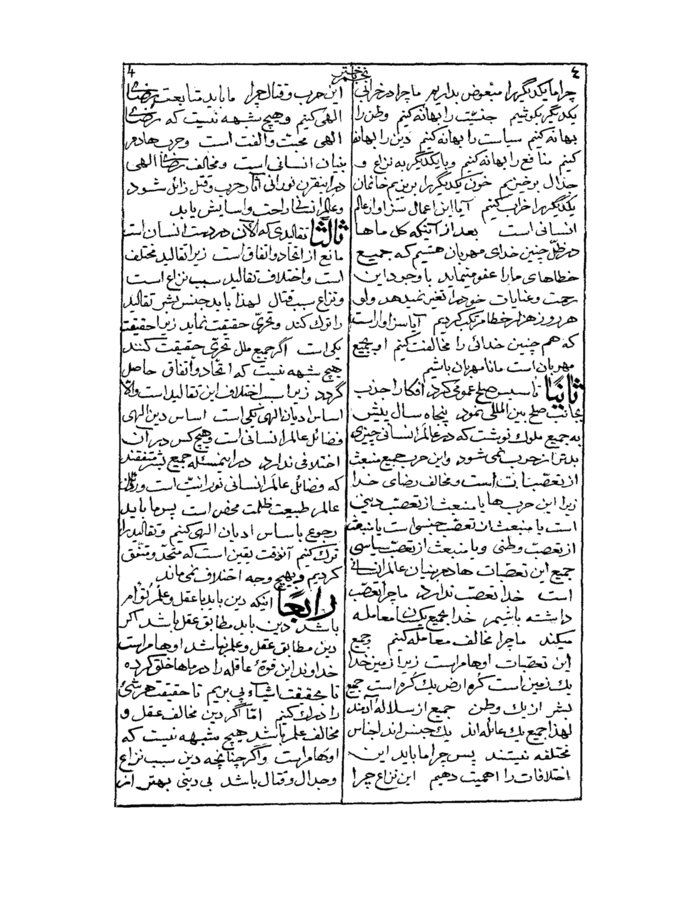 ٤
نجم باختر
4
چرا ما یکدیگر را مبغوض بداریم ما چرا در خرابی
یکدیگر بکوشیم جنسیت را بهانه کنیم وطن را
بهانه کنیم سیاست را بهانه کنیم دین را بهانه
کنیم منافع را بهانه کنیم و با یکدیگر به نزاع و
جدال برخیزیم خون یکدیگر را بریزیم خانمان
یکدیگر را خراب کنیم آیا این اعمال سزاوار عالم
انسانی است بعد از آنیکه کل ماها
در ظل چنین خدای مهربان هستیم که جمیع
خطاهای ما را عفو مینماید با وجود این
رحمت و عنایات خود را تغییر نمیدهد ولی
هر روز هزار خطا مرتکب گردیم آیا سزاوار است
که هم چنین خدائی را مخالفت کنیم او بجمیع
مهربان است ما نا مهربان باشیم
ثانیاً تأسیس صلح عمومی کرد افکار را جذب
بجانب صلح بین المللی نمود پنجاه سال پیش
به جمیع ملوک نوشت که در عالم انسانی چیزی
بدتر از حرب نمی شود و این حرب جمیع منبعث
از تعصبات است و مخالف رضای خدا
زیرا این حرب ها یا منبعث از تعصب دینی
است یا منبعث از تعصب جنسی است یا منبعث
از تعصب وطنی و یا منبعث از تعصب سیاسی
جمیع این تعصبات هادم بنیان عالم انسانی
است خدا تعصب ندارد ما چرا تعصب
داشته باشیم خدا بجمیع یکسان معامله
میکند ما چرا مخالف معامله کنیم جمیع
این تعصبات اوهام است زیرا زمین خدا
یک زمین است کره ارض یک کره است جمیع
بشر از یک وطن جمیع از سلاله آدمند
لهذا جمیع یک عائله اند یک جنس اند اجناس
مختلفه نیستند پس چرا ما باید این
اختلافات را اهمیت دهیم این نزاع چرا
این حرب و قتال چرا ما باید متابعت رضای
الهی کنیم و هیچ شبهه نیست که رضای
الهی محبت و الفت است و حرب هادم
بنیان انسانی است و مخالف رضای الهی
در این قرن نورانی آثار حرب و قتل زائل شود
و عالم انسانی راحت و آسایش یابد
ثالثاً تقالیدی که الآن در دست انسان است
مانع از اتحاد و اتفاق است زیرا تقالید مختلف
است و اختلاف تقالید سبب نزاع است
و نزاع سبب قتال لهذا باید جنس بشر تقالید
را ترک کند و تحرّی حقیقت نماید زیرا حقیقت
یکی است اگر جمیع ملل تحری حقیقت کنند
هیچ شبهه نیست که اتحاد و اتفاق حاصل
گردد زیرا سبب اختلاف این تقالید است والّا
اساس ادیان الهی یکی است اساس دین الهی
فضائل عالم انسانی است و هیچ کس در آن
اختلافی ندارد در این مسئله جمیع بشر متفقند
که فضائل عالم انسانی نورانیت است و رذائل
عالم طبیعت ظلمت محض است پس ما باید
رجوع با ساس ادیان الهی کنیم و تقالید را
ترک کنیم آنوقت یقین است که متحد و متفق
گردیم و بهیچ وجه اختلاف نمی ماند
رابعاً آنیکه دین باید با عقل و علم توأم
باشد دین باید مطابق عقل باشد اگر
دین مطابق عقل و علم نباشد اوهام است
خداوند این قوه عاقله را در ماها خلق کرده
تا بحقیقت اشیاء پی بریم تا حقیقت هر شئ
را ادراک کنیم امّا اگر دین مخالف عقل و
مخالف علم باشد هیچ شبهه نیست که
اوهام است و اگر چنانچه دین سبب نزاع
و جدال و قتال باشد بی دینی بهتر از